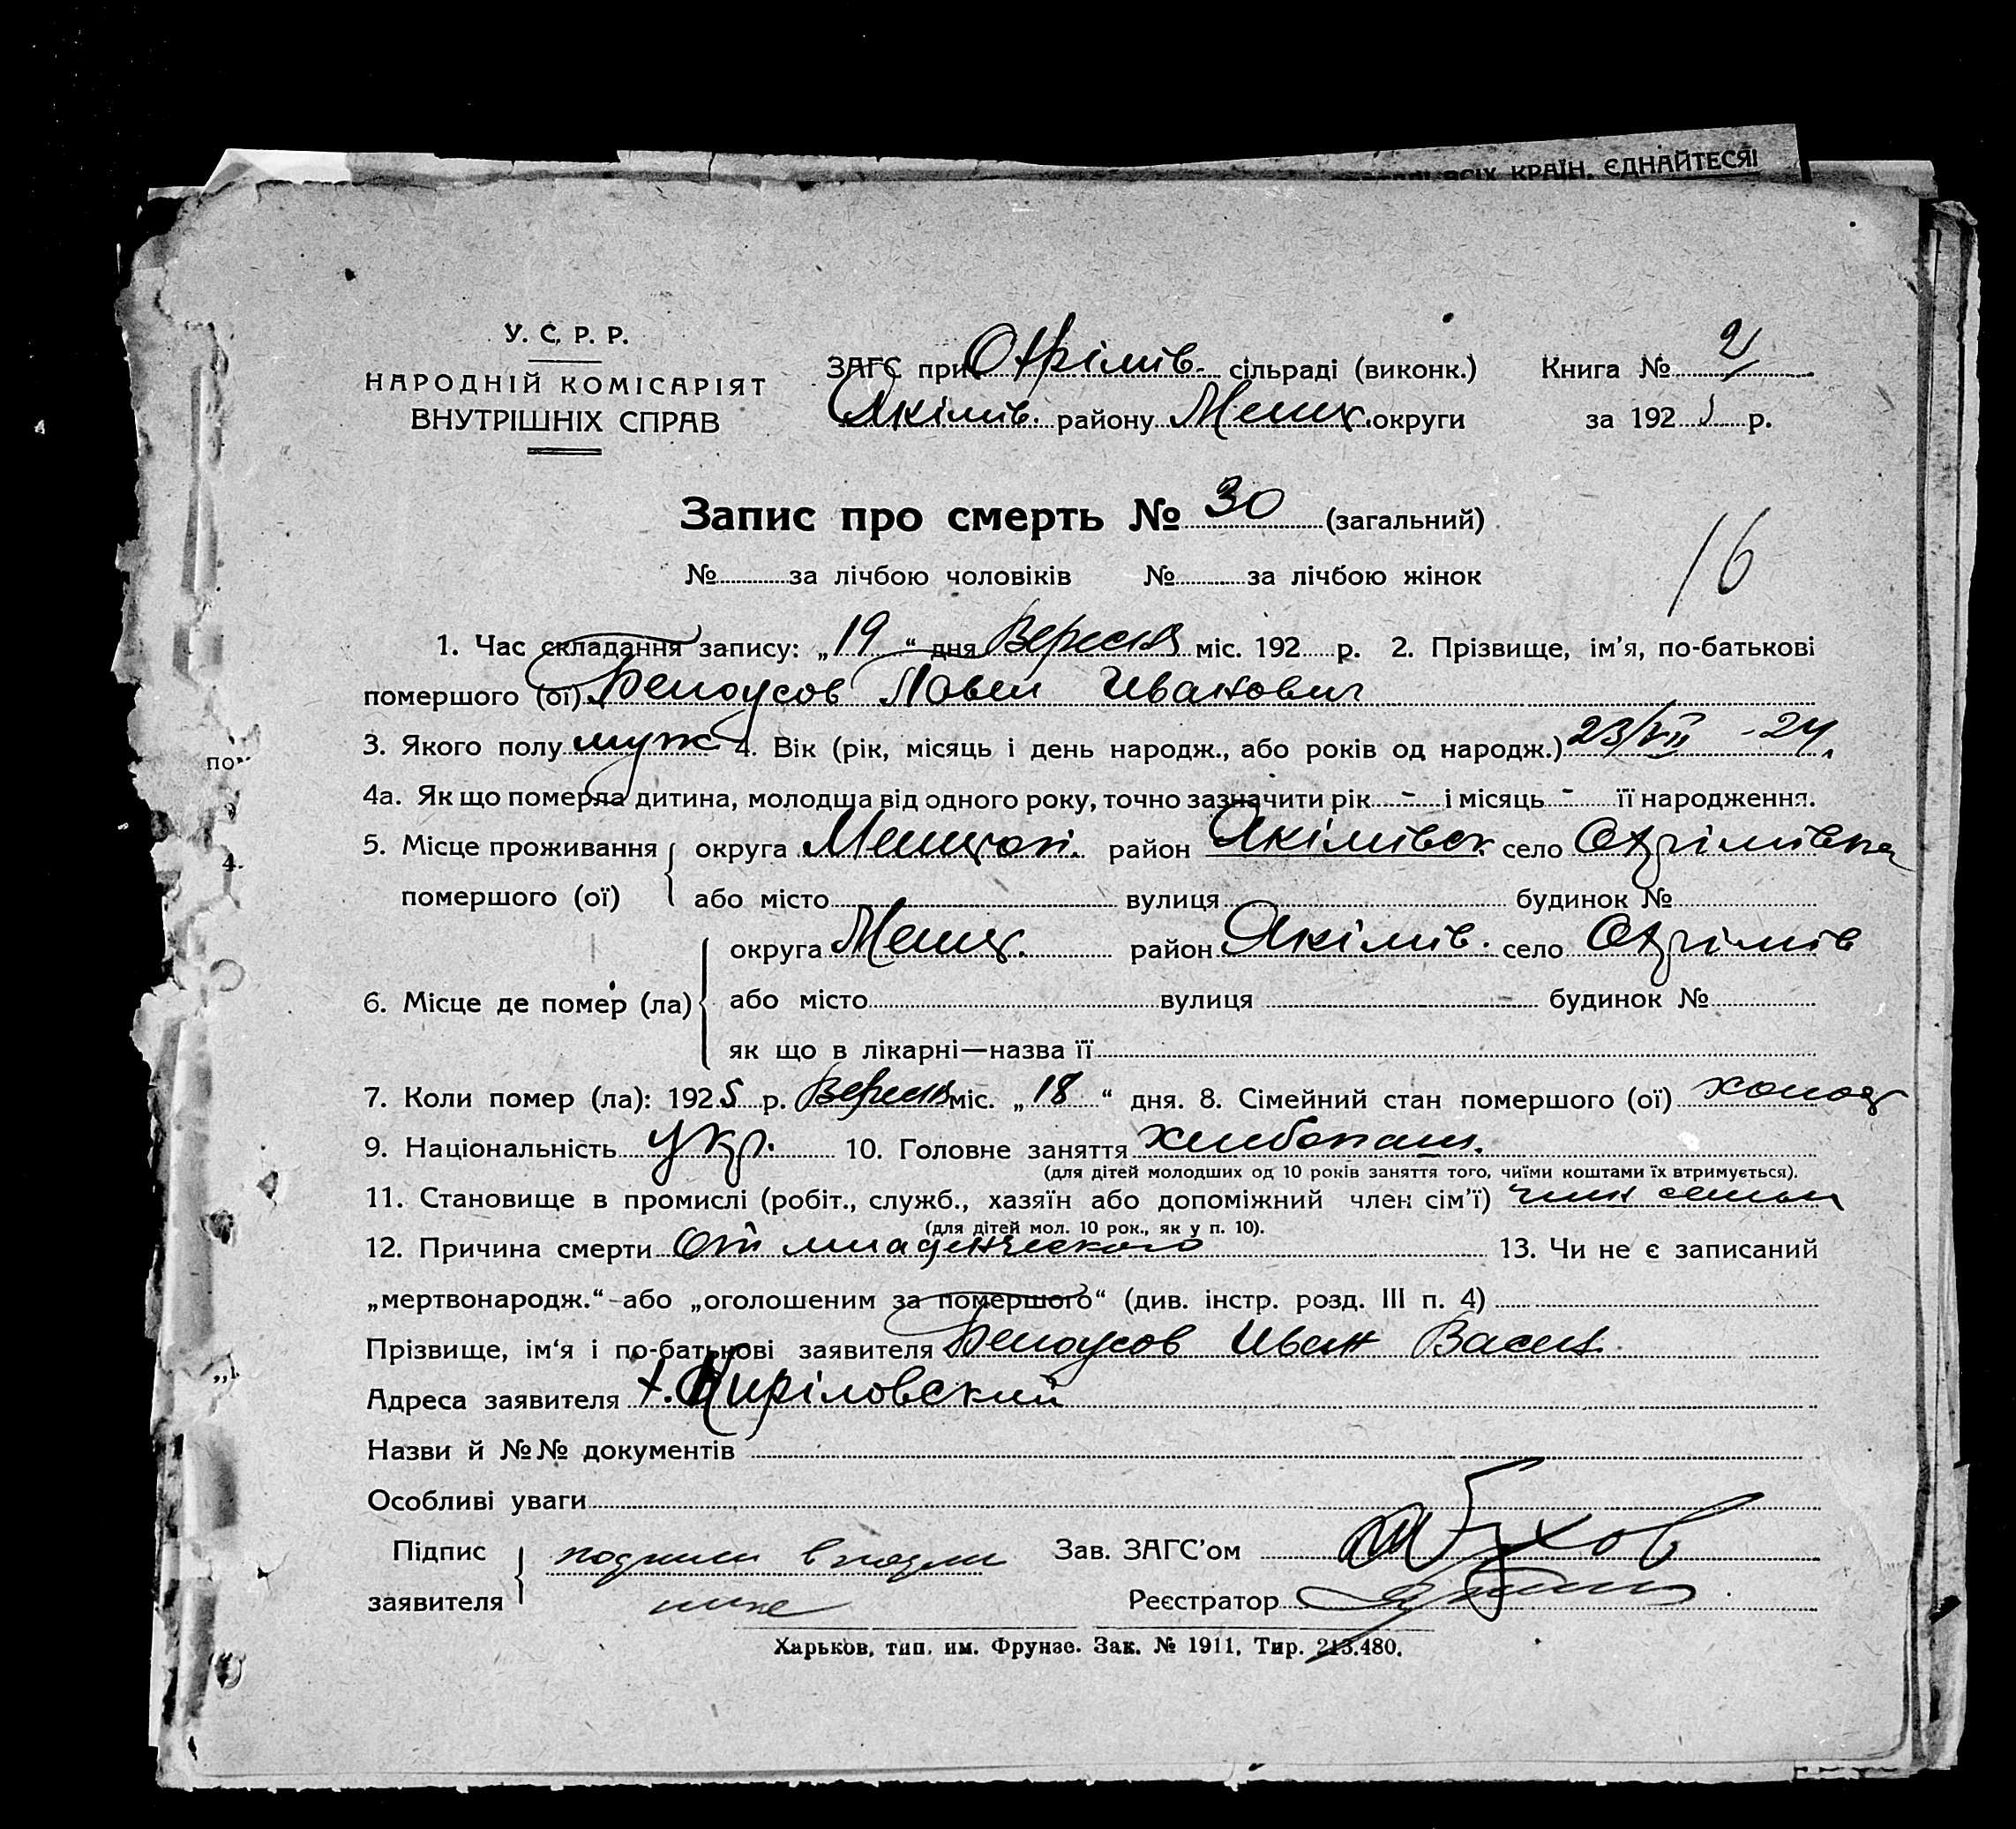 КРАЇН. ЄДНАЙТЕСЯ!
У. С. Р. Р.
НАРОДНІЙ КОМІСАРІЯТ
ВНУТРІШНІХ СПРАВ
ЗАГС при Охрімів. сільраді (виконк.) Книга № 2
Якімів. району Мелит. округи за 192 р.
Запис про смерть № 30 (загальний)
№ за лічбою чоловіків № за лічбою жінок
16
1. Час складання запису: „19“ дня Вересня міс. 192 р. 2. Прізвище, ім’я, по-батькові
помершого (ої) Белоусов Павел Иванович
3. Якого полу муж 4. Вік (рік, місяць і день народж., або років од народж.) 23/VII - 24.
4а. Як що померла дитина, молодша від одного року, точно зазначити рік - і місяць - її народження.
5. Місце проживання округа район Якімівск село Охрімівка
помершого (ої) або місто вулиця будинок №
округа Мелит. район Якімів. село Охрімів
6. Місце де помер (ла) або місто вулиця будинок №
як що в лікарні—назва її
7. Коли помер (ла): 1925 р. Вересня міс. „18“ дня. 8. Сімейний стан помершого (ої) холос
9. Національність Укр. 10. Головне заняття хлибопаш.
(для дітей молодших од 10 років заняття того, чиїми коштами їх втримується).
11. Становище в промислі (робіт., служб., хазяїн або допоміжний член сім’ї) член семьи
(для дітей мол. 10 рок., як у п. 10).
12. Причина смерти От младенческого 13. Чи не є записаний
„мертвонародж.“ або „оголошеним за помершого“ (див. інстр. розд. III п. 4)
Прізвище, ім‘я і по-батькові заявителя Белоусов Иван Васил.
Адреса заявителя х. Киріловский
Назви й №№ документів
Особливі уваги
Підпис Зав. ЗАГС’ом
заявителя Реєстратор
Харьков, тип. им. Фрунзе. Зак. № 1911. Тир. 213.480.